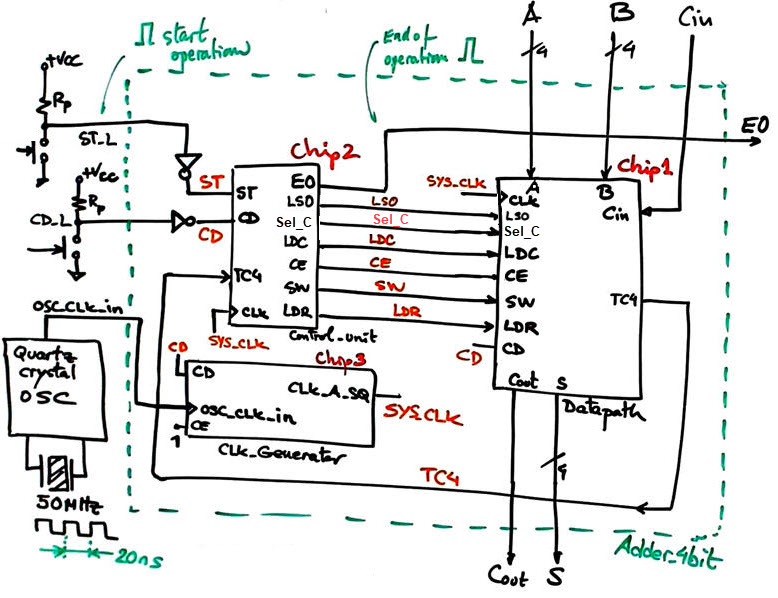 start
operation
End of
operation
A
B
Cin
4
4
+VCC
Rp
ST_L
+VCC
Rp
CD_L
Chip2
ST
CD
ST
CD
TC4
CLK
EO
LSO
Sel_C
LDC
CE
SW
LDR
SYS_CLK
Control_unit
LSO
Sel_C
LDC
CE
SW
LDR
EO
Chip1
SYS_CLK
CD
A
B
CLK
LSO
Sel_C
LDC
CE
SW
LDR
CD
Cin
TC4
Cout
S
Datapath
OSC_CLK_in
Quartz
crystal
OSC
50MHz
20ns
CD
Chip3
CD
OSC_CLK_in
CE
1
CLK_A_SQ
SYS_CLK
CLK_Generator
TC4
4
Adder_4bit
Cout
S